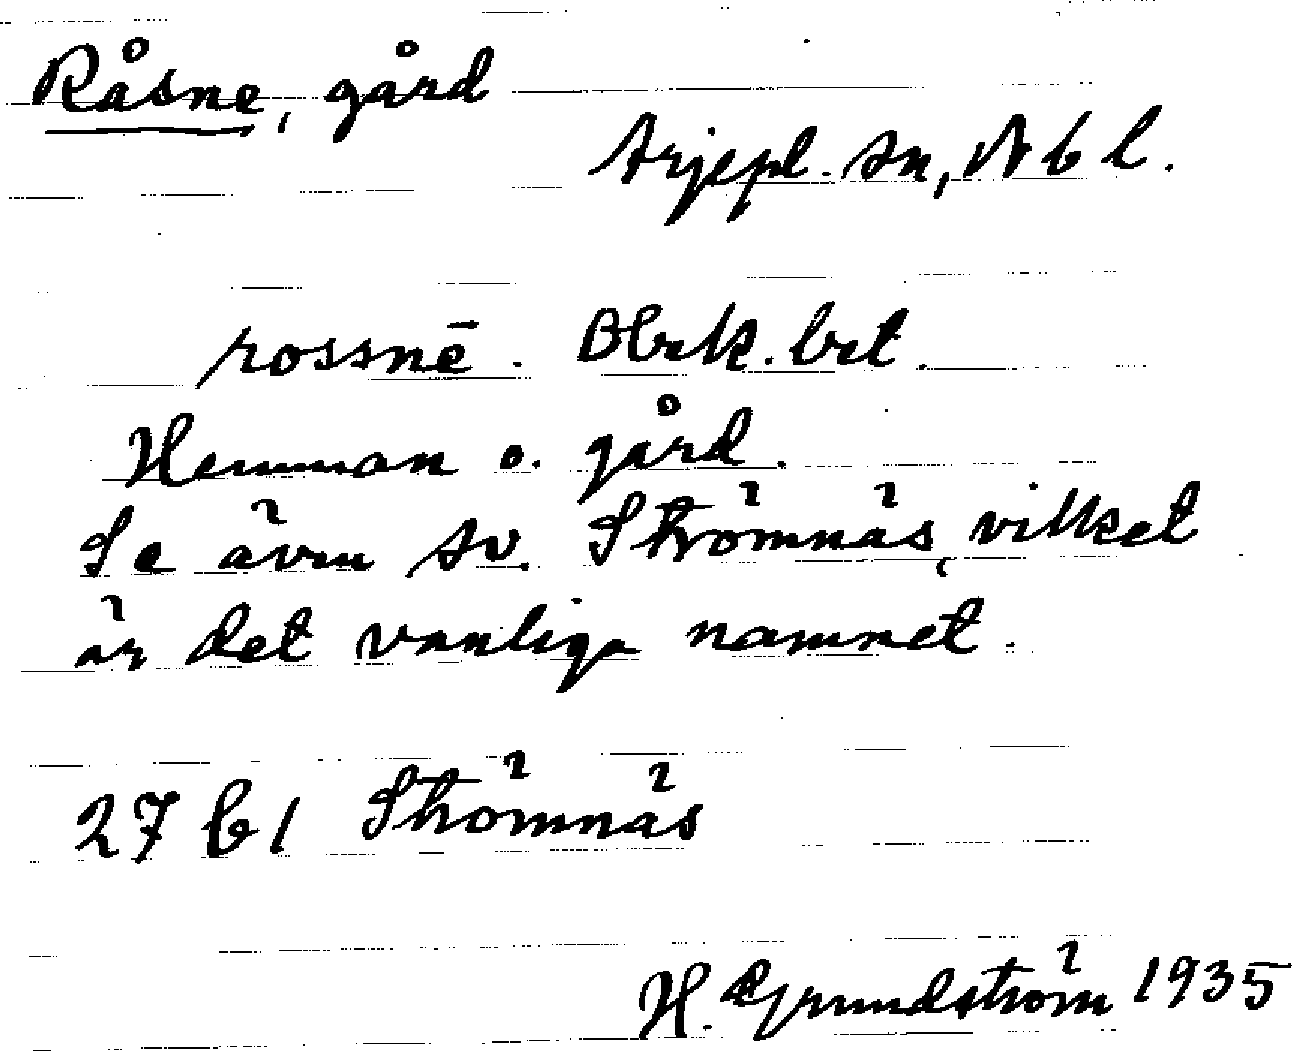 Råsne, gård
Arjepl. sn, Nbl.
rossnē. Blrk. brt.
Hemman o. gård.
Se även sv. Strömnäs, vilket
är det vanliga namnet.
27 b1 Strömnäs
H. Grundström 1935